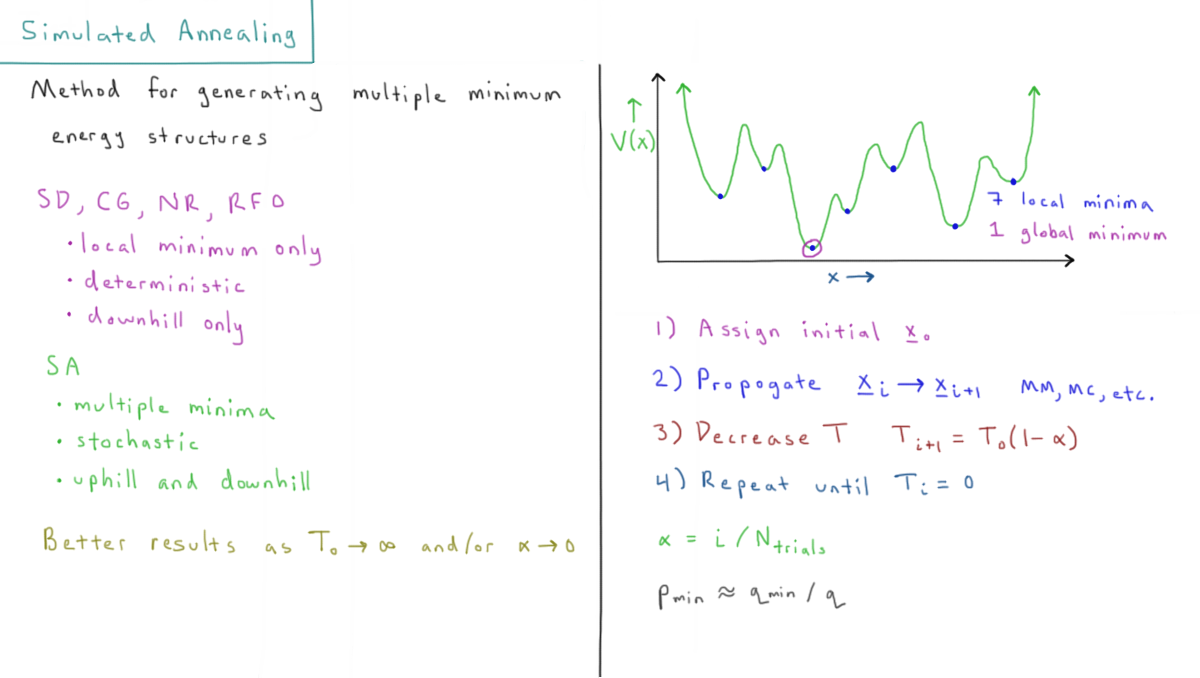 Simulated Annealing
Method for generating multiple minimum
energy structures
SD, CG, NR, RFO
• local minimum only
• deterministic
• downhill only
SA
• multiple minima
• stochastic
• uphill and downhill
Better results as T₀ → ∞ and/or α → 0
↑
V(x)
7 local minima
1 global minimum
x →
1) Assign initial x̲₀
2) Propogate x̲ᵢ → x̲ᵢ₊₁ MM, MC, etc.
3) Decrease T Tᵢ₊₁ = T₀(1-α)
4) Repeat until Tᵢ = 0
α = i / N_trials
P_min ≈ q_min / q